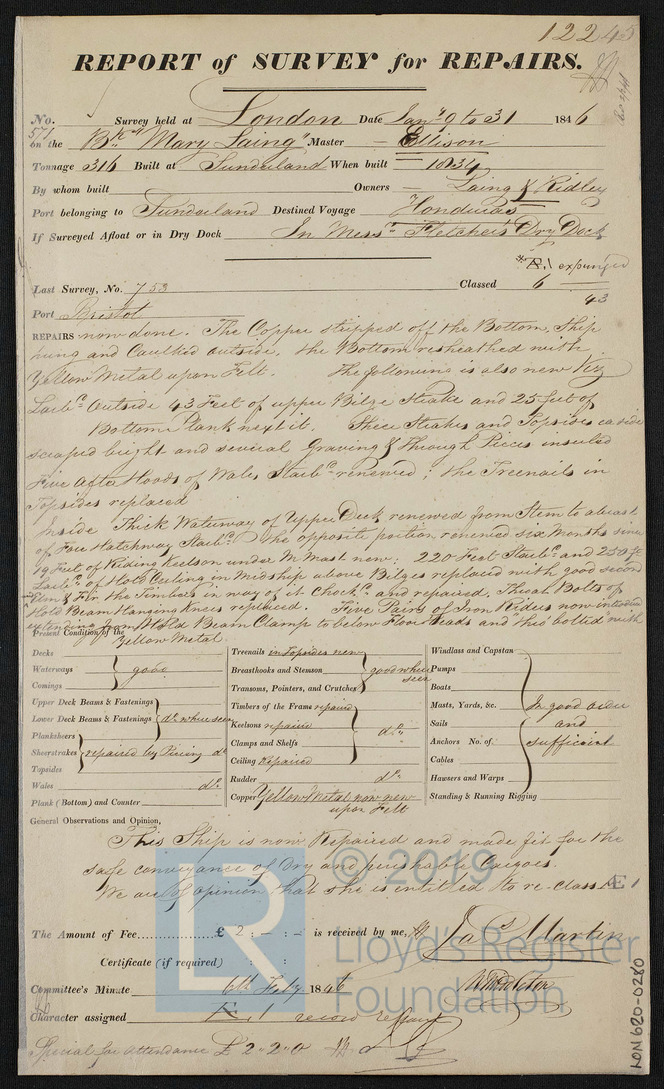 12245
REPORT of SURVEY for REPAIRS.
No. 571 Survey held at London Date Jany 9 to 31 1846
on the Bk "Mary Laing" Master Ellison
Tonnage 316 Built at Sunderland When built 1834
By whom built Owners Laing & Ridley
Port belonging to Sunderland Destined Voyage Honduras
If Surveyed Afloat or in Dry Dock In Messrs Fletcher's Dry Dock
expunged
Last Survey, No. 753 Classed 6
43
Port Bristol
REPAIRS now done. The Copper stripped off the Bottom, Ship
hung and Caulked outside. the Bottom resheathed with
Yellow Metal upon Felt. The following is also new Vizz
Larbd Outside 43 Feet of upper Bilge Strake and 25 feet of
Bottom Plank next it. Sheer Strakes and Topsides outside
scraped bright and several Graving & Through Pieces inserted
Five after Hoods of Wales Starbd renewed; the Treenails in
Topsides replaced
Inside Thick Waterway of Upper Deck renewed from Stem to abaft
of Fore Hatchway Starbd the opposite portion renewed six Months since
19 Feet of Riding Keelson under M. Mast new; 220 Feet Starbd and 250 ft
Larbd of Hold Ceiling in Midship above Bilges replaced with good second
Elm & Fir the Timbers in way of it Chockd and repaired. Bolts of
Hold Beam Hanging Knees replaced. Five Pairs of Iron Riders now introduced
extending from Hold Beam Clamp to below Floor Heads and this bolted with
Yellow Metal
Present Condition of the
Decks
Waterways good
Comings
Upper Deck Beams & Fastenings
Lower Deck Beams & Fastenings do where seen
Planksheers
Sheerstrakes repaired by Piecing do
Topsides
Wales do
Plank (Bottom) and Counter
Treenails in Topsides new
Breasthooks and Stemson good where seen
Transoms, Pointers, and Crutches
Timbers of the Frame repaired
Keelsons repaired do
Clamps and Shelfs
Ceiling Repaired
Rudder do
Copper Yellow Metal now new
upon Felt
Windlass and Capstan
Pumps
Boats
Masts, Yards, &c. In good order
Sails and
Anchors No. of. sufficient
Cables
Hawsers and Warps
Standing & Running Rigging
General Observations and Opinion,
This Ship is now Repaired and made fit for the
safe conveyance of Dry and perishable Cargoes.
We are of opinion that she is entitled to re-class Æ 1
The Amount of Fee £ 2 : - : - is received by me, Jas Martin
Certificate (if required) : :
Committee's Minute 6th Feby 1846
Character assigned Æ 1
Special for attendance £ 2.2.0
LON 620-0280
© 2019
Lloyd's Register
Foundation